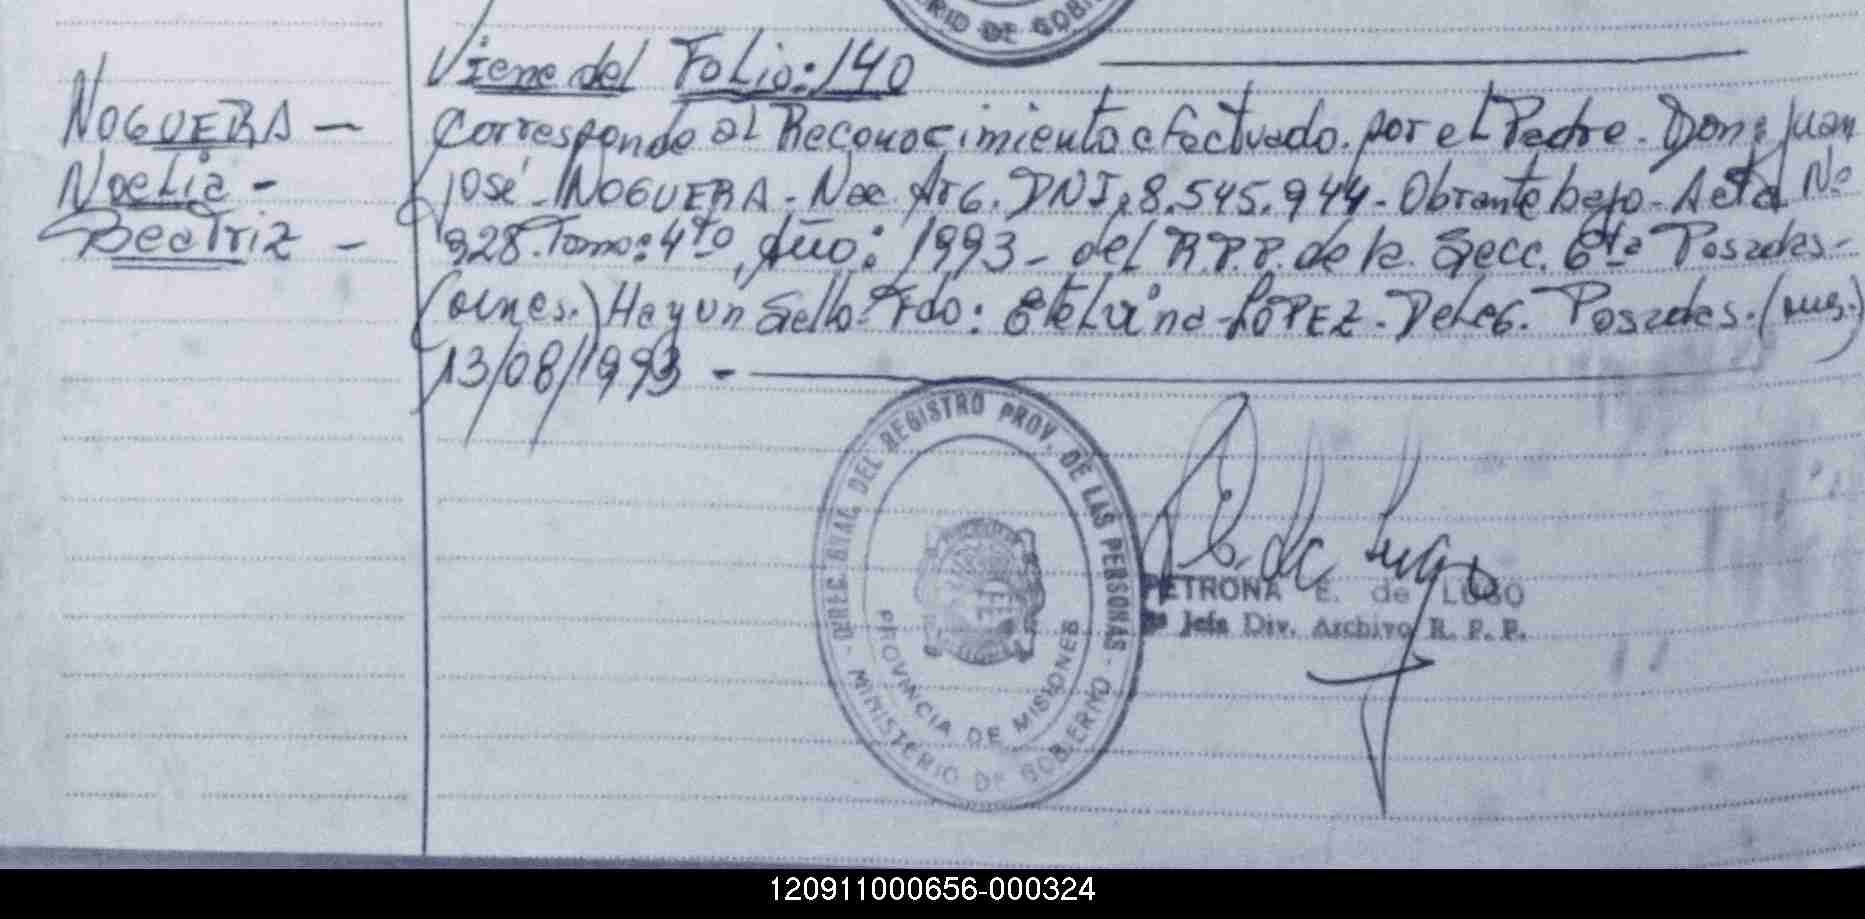 RIO DE GOBI
Viene del Folio: 140
NOGUERA —
Corresponde al Reconocimiento efectuado. por el Padre. Don: Juan
Noelia -
José - NOGUERA - Nac. Arg. DNI. 8.545.944 - Obrante bajo - Acta No
Beatriz -
928. Tomo: 4to, Año: 1993 - del R.P.P. de la Secc. 6ta Posadas -
Hay un Sello Fdo: Etelvina - LÓPEZ - Deleg. Posadas.
13/08/1993 -
DIREC. GRAL. DEL REGISTRO PROV. DE LAS PERSONAS
PROVINCIA DE MISIONES
- MINISTERIO DE GOBIERNO -
P. E. de Lugo
PETRONA E. de LUGO
Jefa Div. Archivo R. P. P.
120911000656-000324